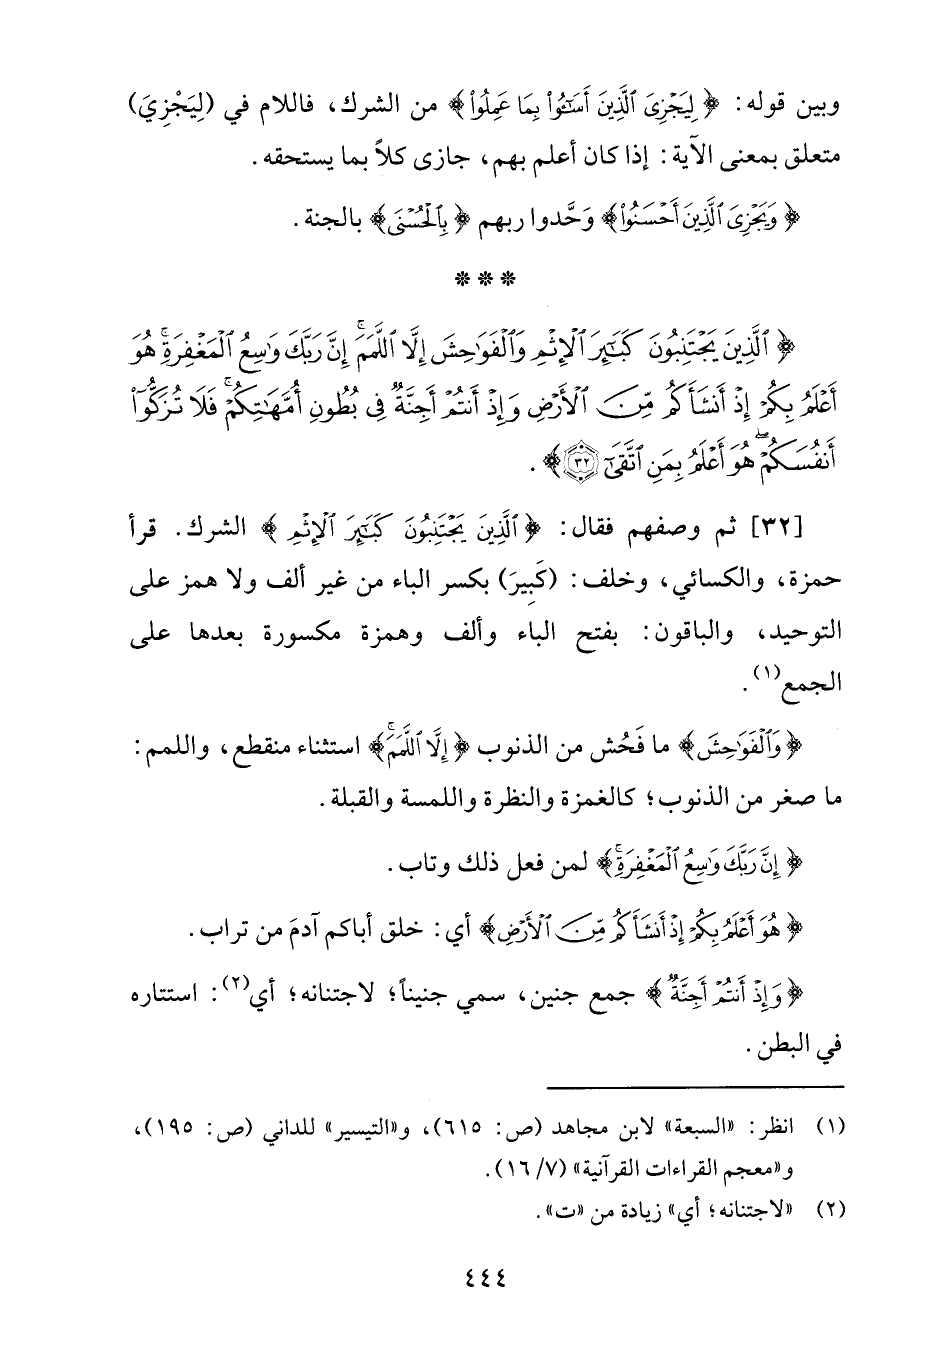 وبين قوله: ﴿لِيَجْزِيَ الَّذِينَ أَسَٰٓـُٔوا۟ بِمَا عَمِلُوا۟﴾ من الشرك، فاللام في (لِيَجْزِيَ)
متعلق بمعنى الآية: إذا كان أعلم بهم، جازى كلاً بما يستحقه.
﴿وَيَجْزِيَ الَّذِينَ أَحْسَنُوا۟﴾ وَحَّدوا ربهم ﴿بِالْحُسْنَى﴾ بالجنة.
* * *
﴿الَّذِينَ يَجْتَنِبُونَ كَبَٰٓئِرَ الْإِثْمِ وَالْفَوَٰحِشَ إِلَّا اللَّمَمَ ۚ إِنَّ رَبَّكَ وَٰسِعُ الْمَغْفِرَةِ ۚ هُوَ
أَعْلَمُ بِكُمْ إِذْ أَنشَأَكُم مِّنَ الْأَرْضِ وَإِذْ أَنتُمْ أَجِنَّةٌ فِي بُطُونِ أُمَّهَٰتِكُمْ ۖ فَلَا تُزَكُّوٓا۟
أَنفُسَكُمْ ۖ هُوَ أَعْلَمُ بِمَنِ اتَّقَىٰٓ ٣٢﴾.
[٣٢] ثم وصفهم فقال: ﴿الَّذِينَ يَجْتَنِبُونَ كَبَٰٓئِرَ الْإِثْمِ﴾ الشرك. قرأ
حمزة، والكسائي، وخلف: (كَبِيرَ) بكسر الباء من غير ألف ولا همز على
التوحيد، والباقون: بفتح الباء وألف وهمزة مكسورة بعدها على
الجمع(١).
﴿وَالْفَوَٰحِشَ﴾ ما فَحُش من الذنوب ﴿إِلَّا اللَّمَمَ ۚ﴾ استثناء منقطع، واللمم:
ما صغر من الذنوب؛ كالغمزة والنظرة واللمسة والقبلة.
﴿إِنَّ رَبَّكَ وَٰسِعُ الْمَغْفِرَةِ ۚ﴾ لمن فعل ذلك وتاب.
﴿هُوَ أَعْلَمُ بِكُمْ إِذْ أَنشَأَكُم مِّنَ الْأَرْضِ﴾ أي: خلق أباكم آدمَ من تراب.
﴿وَإِذْ أَنتُمْ أَجِنَّةٌ﴾ جمع جنين، سمي جنيناً؛ لاجتنانه؛ أي(٢): استتاره
في البطن.
(١) انظر: «السبعة» لابن مجاهد (ص: ٦١٥)، و«التيسير» للداني (ص: ١٩٥)،
و«معجم القراءات القرآنية» (٧/ ١٦).
(٢) «لاجتنانه؛ أي» زيادة من «ت».
٤٤٤